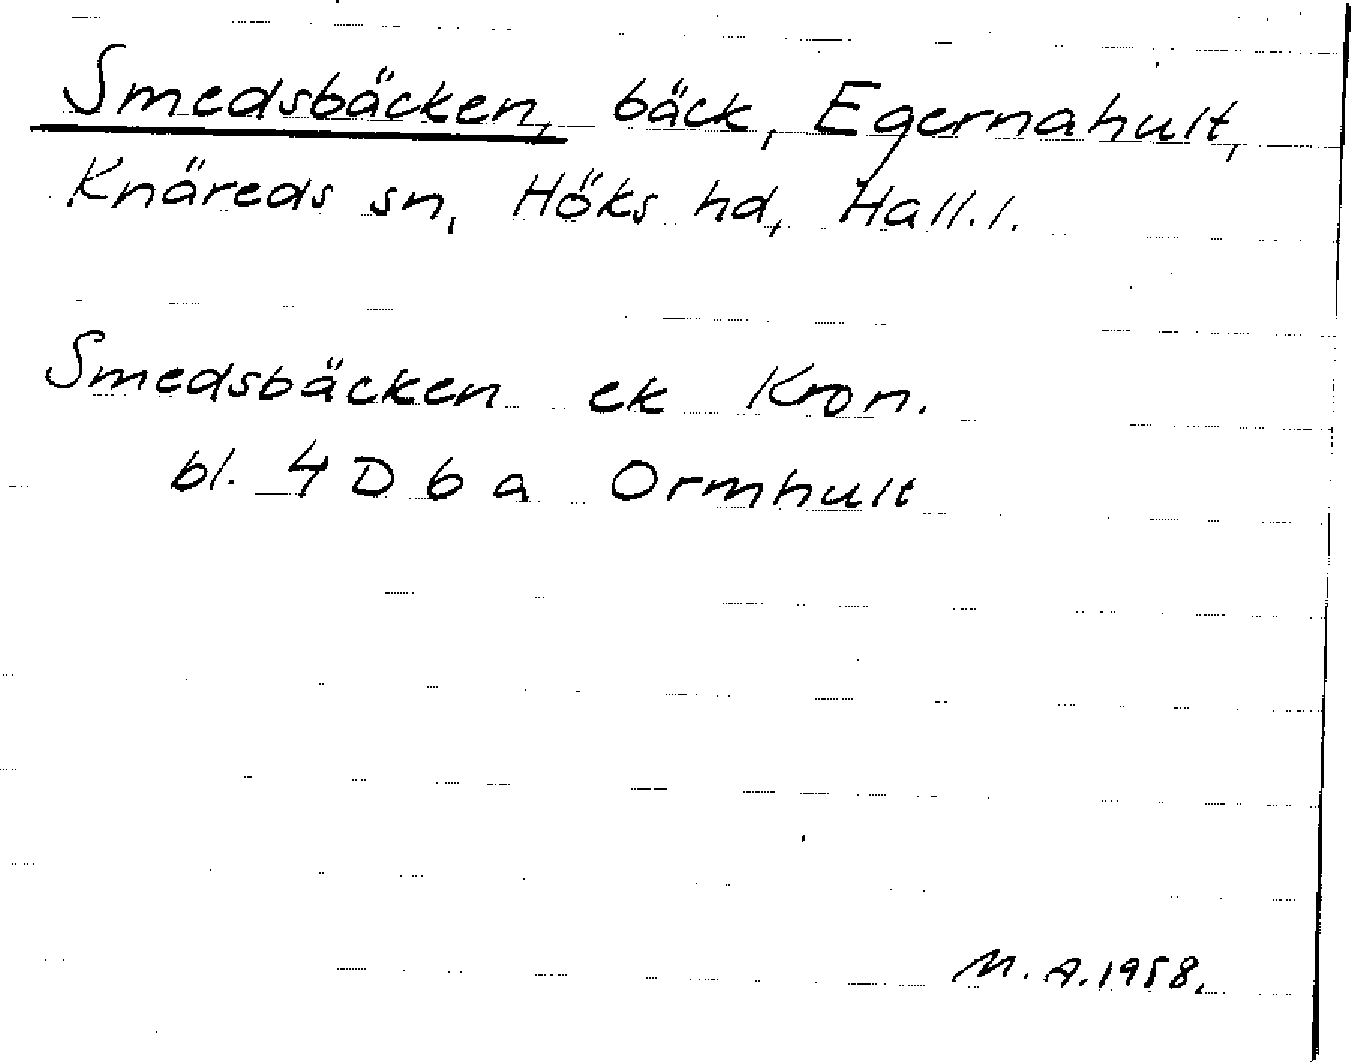 Smedsbäcken, bäck, Egernahult,
Knäreds sn, Höks hd, Hall.l.
Smedsbäcken ek Kron.
bl. 4 D 6 a Ormhult
M. A. 1958.